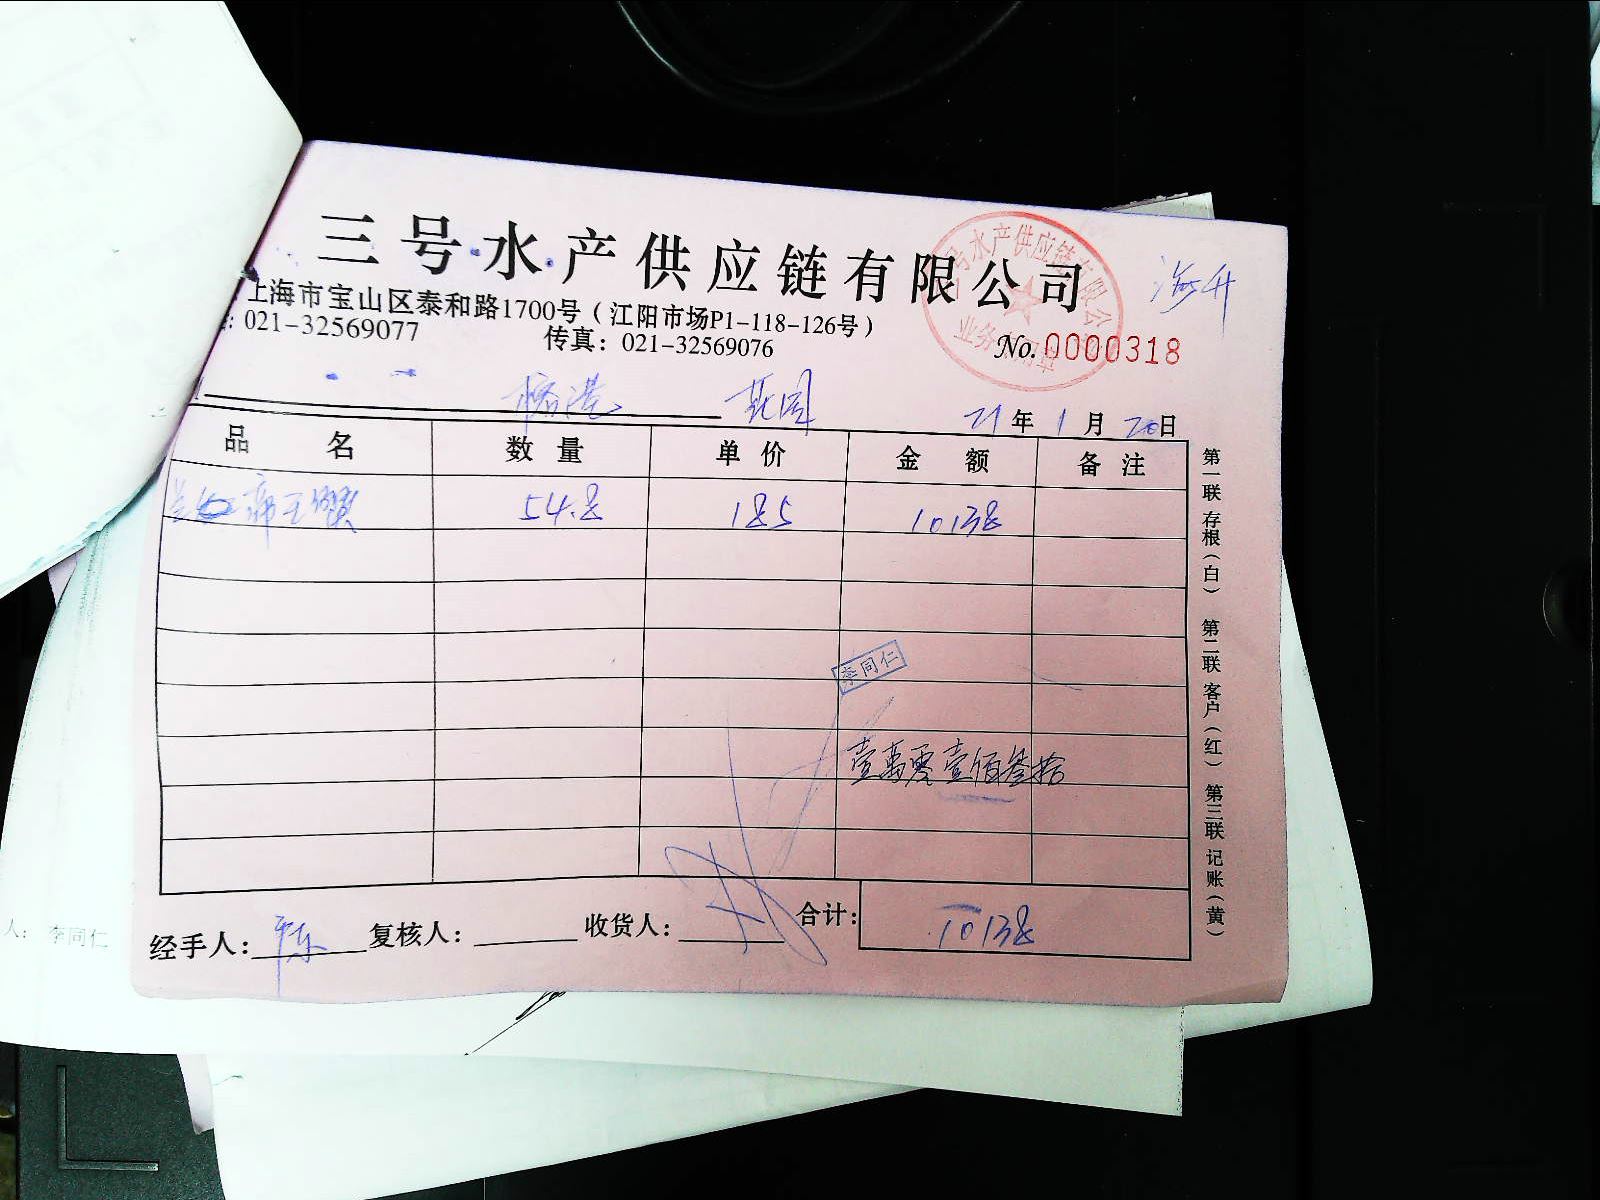 三号水产供应链有限公司
海升
上海市宝山区泰和路1700号（江阳市场P1-118-126号）
021-32569077 传真：021-32569076
No. 0000318
21年1月20日
品名 数量 单价 金额 备注
帝王蟹 54.8 185 10138
李同仁
壹萬零壹佰叁拾
经手人： 复核人： 收货人： 合计： 10138
第一联存根（白） 第二联客户（红） 第三联记账（黄）
人： 李同仁